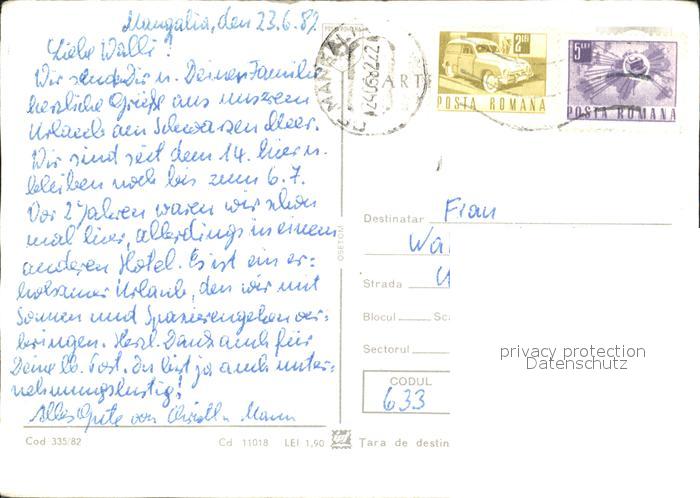 Mangalia, den 23.6.82
Liebe Walli!
Wir senden Dir u. Deiner Familie
herzliche Grüße aus unserem
Urlaub am Schwarzen Meer.
Wir sind seit dem 14. hier u.
bleiben noch bis zum 6.7.
Vor 2 Jahren waren wir schon
mal hier, allerdings in einem
anderen Hotel. Es ist ein er-
holsamer Urlaub, den wir mit
Sonnen und Spazierengehen ver-
bringen. Herzl. Dank auch für
Deine lb. Post. Du bist ja auch unter-
nehmungslustig!
Alles Gute von Mann
Cod 335/82
Cd 11018 LEI 1,90
Tara de destin
2 LEI
POSTA ROMANA
5 LEI
POSTA ROMANA
MANGALIA
Destinatar Frau
Wa
Strada U
Blocul Sc
Sectorul
CODUL
633
privacy protection
Datenschutz